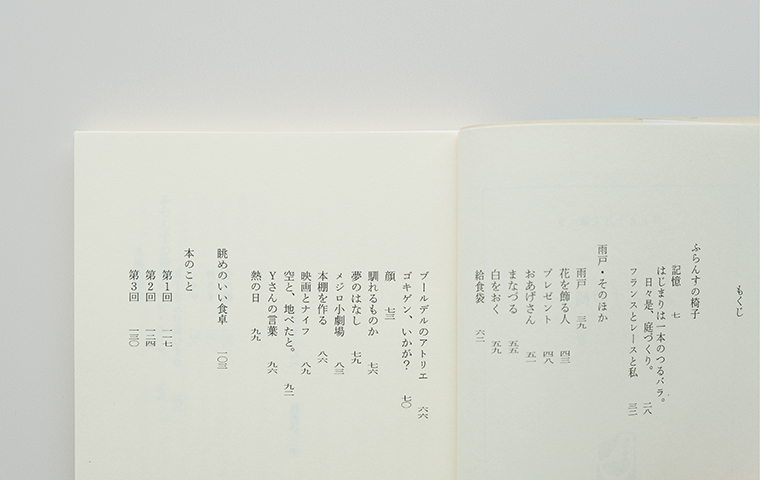 もくじ
ふらんすの椅子
記憶 七
はじまりは一本のつるバラ。
日々是、庭づくり。 二八
フランスとレースと私 三二
雨戸・そのほか
雨戸 三九
花を飾る人 四三
プレゼント 四八
おあげさん 五一
まなづる 五五
白をおく 五九
給食袋 六二
ブールデルのアトリエ 六六
ゴキゲン、いかが? 七〇
顔 七三
馴れるものか 七六
夢のはなし 七九
メジロ小劇場 八三
本棚を作る 八六
映画とナイフ 八九
空と、地べたと。 九二
Yさんの言葉 九六
熱の日 九九
眺めのいい食卓 一〇三
本のこと
第1回 一一七
第2回 一二四
第3回 一三〇